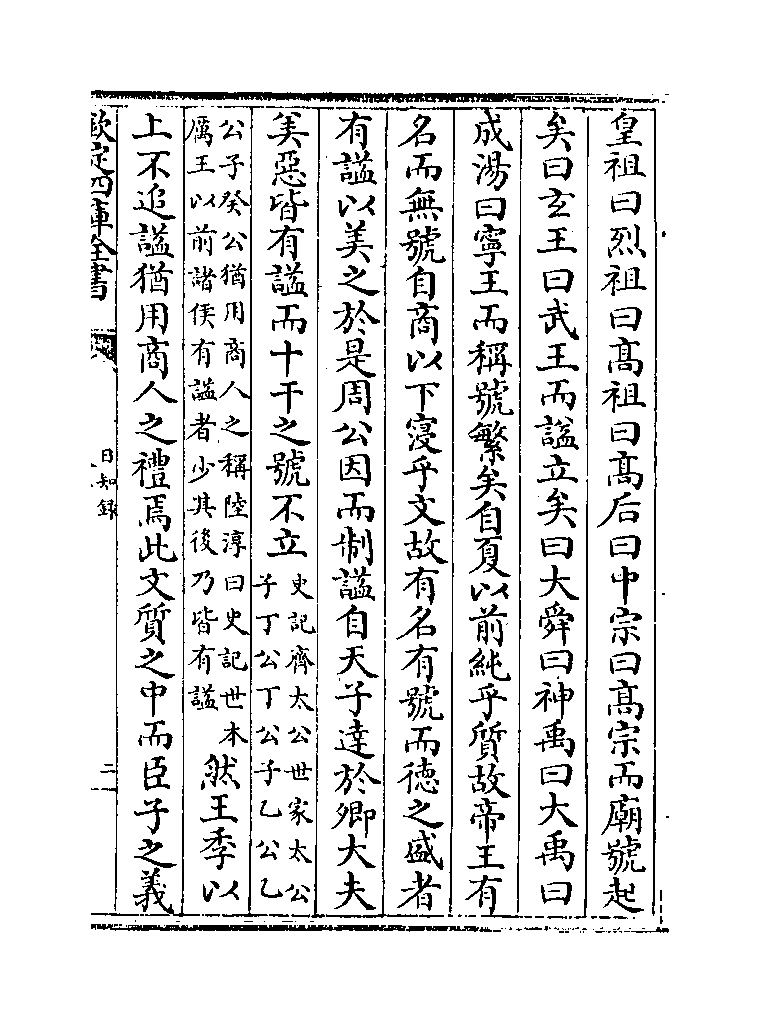 皇祖曰烈祖曰髙祖曰髙后曰中宗曰髙宗而廟號起
矣曰玄王曰武王而諡立矣曰大舜曰神禹曰大禹曰
成湯曰寧王而稱號繁矣自夏以前純乎質故帝王有
名而無號自商以下寖乎文故有名有號而徳之盛者
有諡以美之於是周公因而制諡自天子達於卿大夫
美惡皆有諡而十干之號不立史記齊太公世家太公
子丁公丁公子乙公乙
公子癸公猶用商人之稱陸淳曰史記世本
厲王以前諸侯有諡者少其後乃皆有諡然王季以
上不追諡猶用商人之禮焉此文質之中而臣子之義
欽定四庫全書
日知錄
二